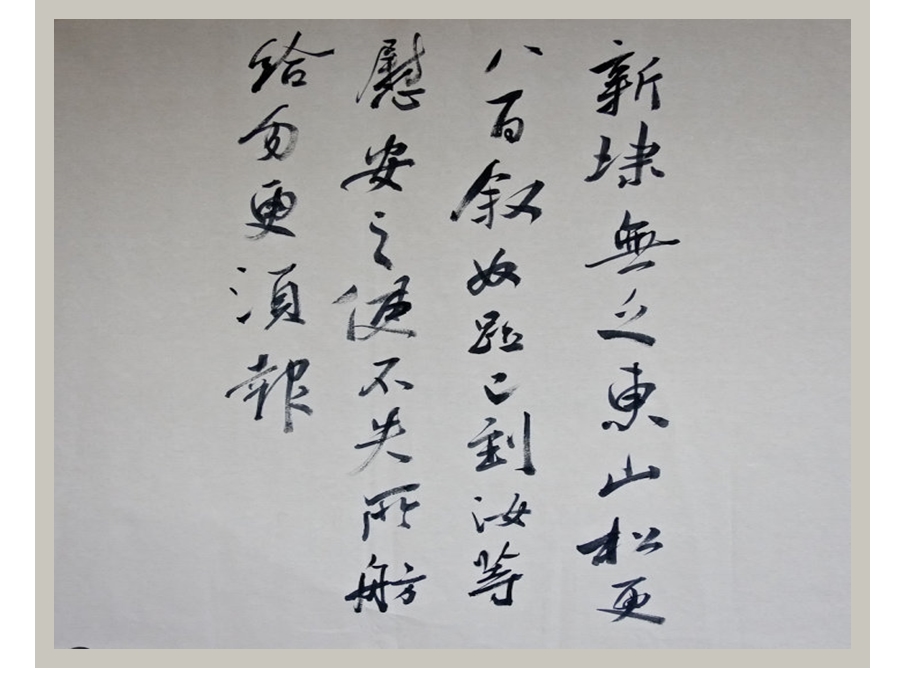 新埭無乏東山松更
八百叙奴已到汝等
慰安之便不失所舫
給勿更須報